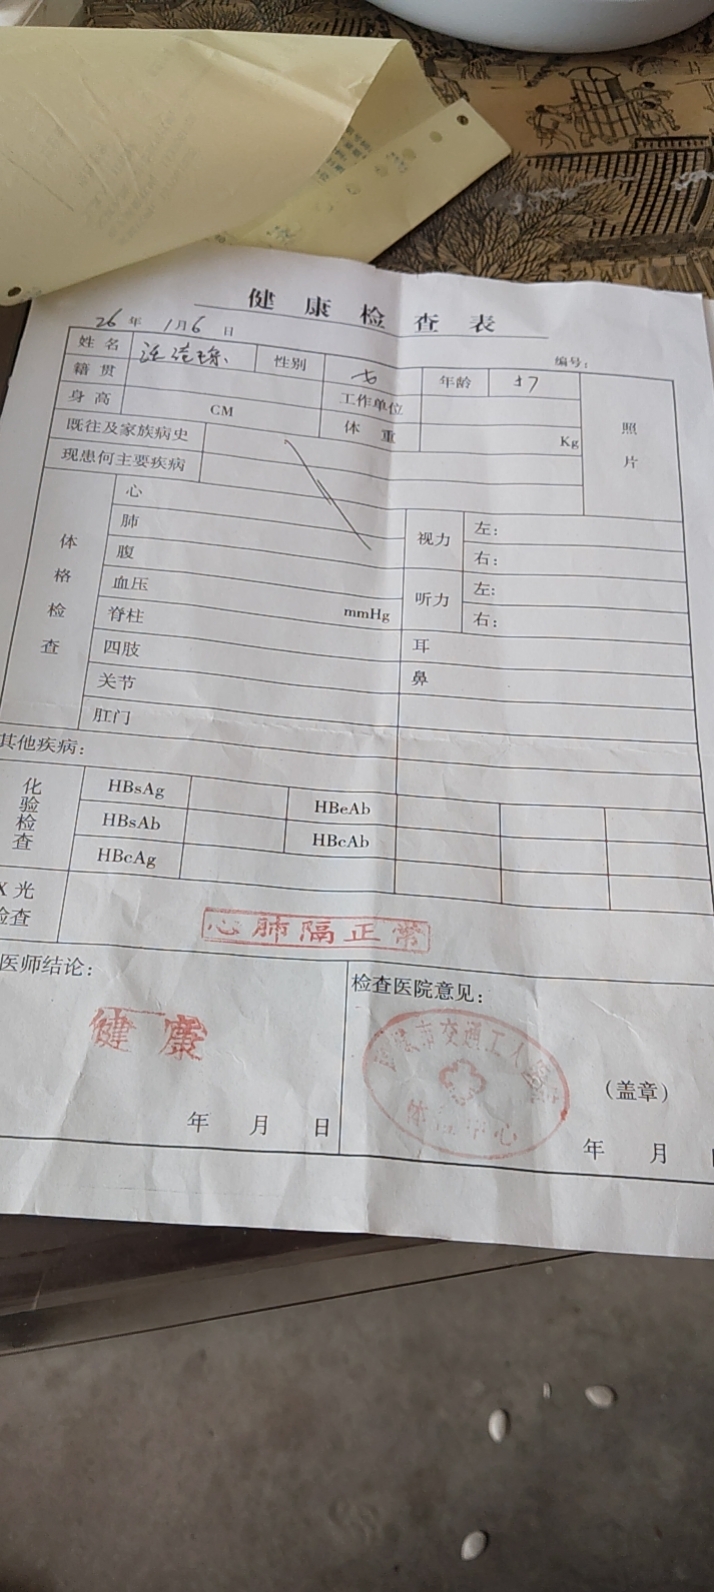 健康检查表
26年 1月6日
编号：
姓名 性别 女 年龄
照片
籍贯 工作单位
身高 CM 体重 Kg
既往及家族病史
现患何主要疾病
体格检查
心
肺 视力 左：
腹 右：
血压 mmHg 听力 左：
脊柱 右：
四肢 耳
关节 鼻
肛门
其他疾病：
化验检查
HBsAg HBeAb
HBsAb HBcAb
HBcAg
X光检查
心肺隔正常
医师结论： 检查医院意见：
健康
市交通工人
体检中心
（盖章）
年 月 日 年 月